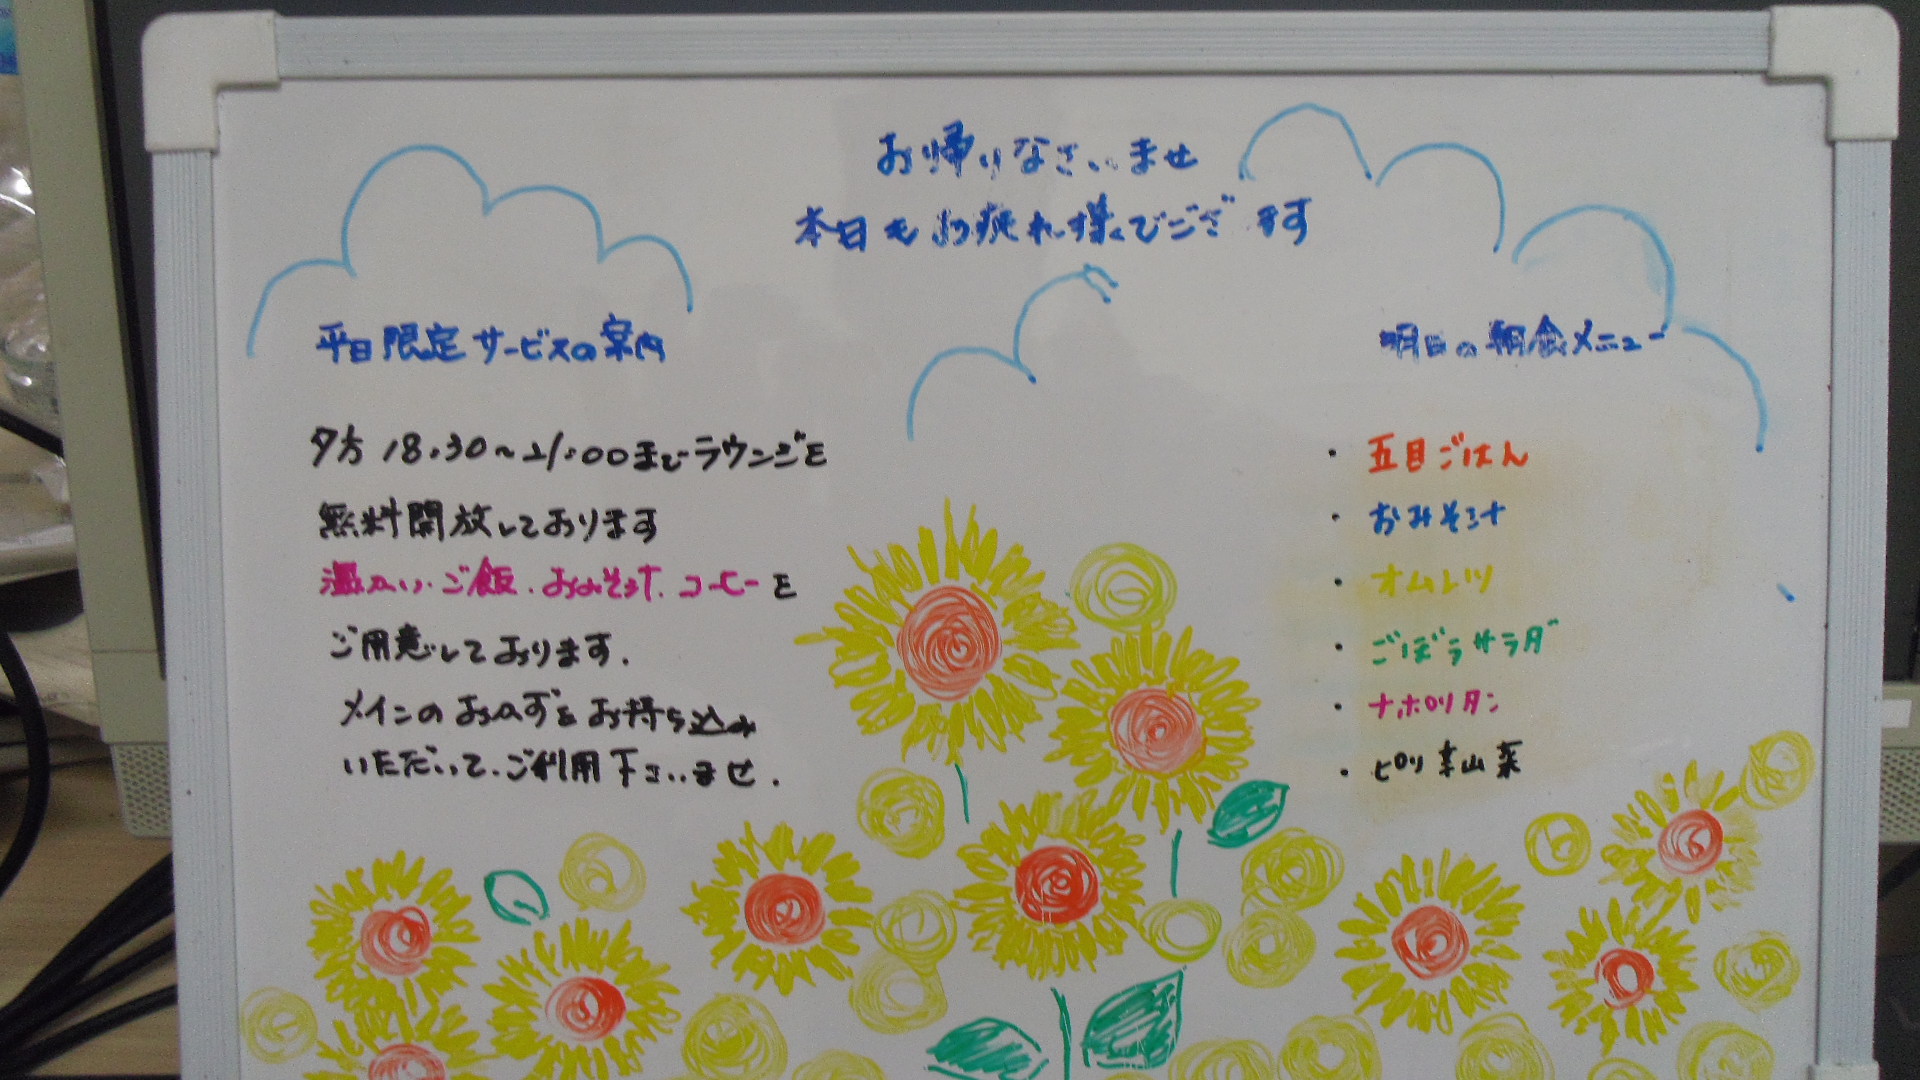 お帰りなさいませ
本日もお疲れ様でございます
平日限定サービスの案内
夕方 18:30~21:00までラウンジを
無料開放しております
温かい・ご飯・おみそ汁・コーヒーを
ご用意しております.
メインのおかずをお持ち込み
いただいて、ご利用下さいませ.
明日の朝食メニュー
・五目ごはん
・おみそ汁
・オムレツ
・ごぼうサラダ
・ナポリタン
・ピリ辛山菜